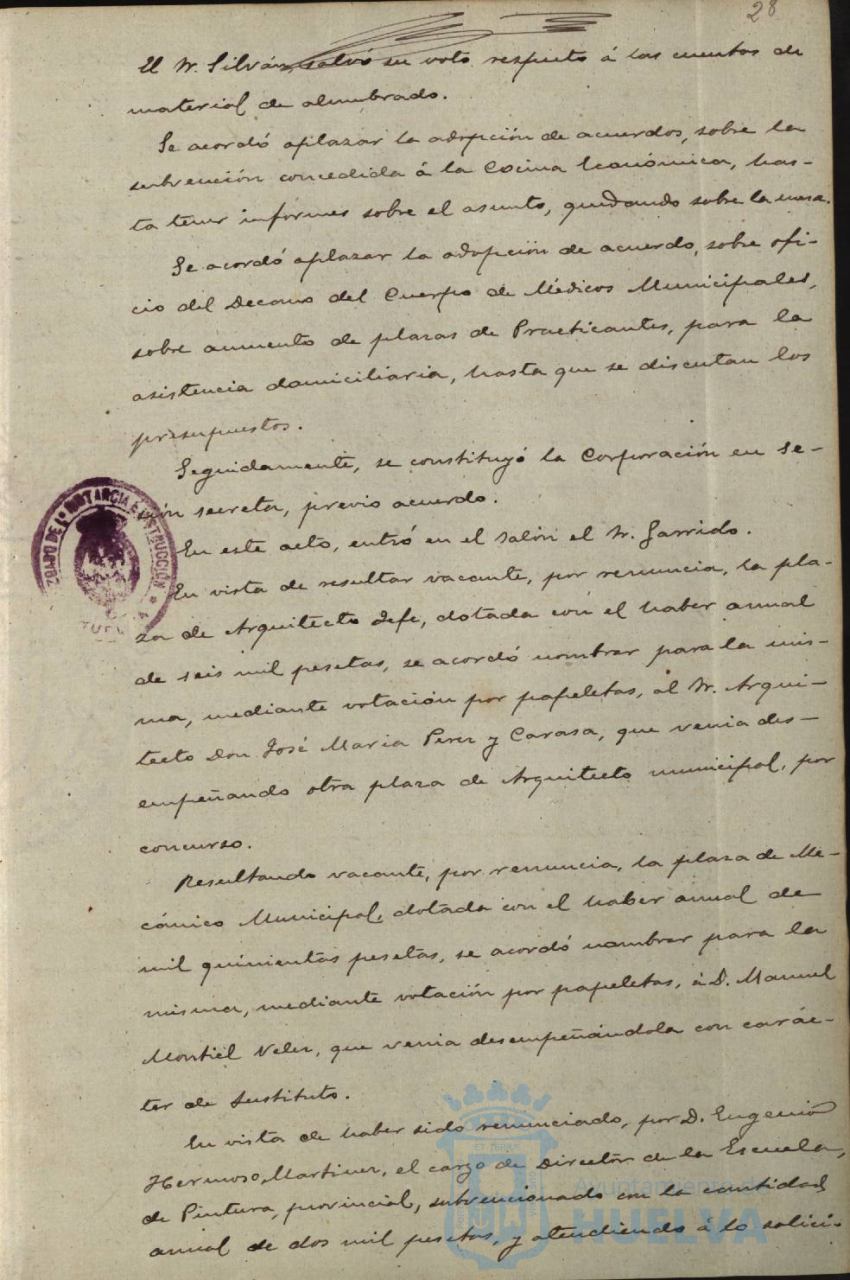 28
El Sr. Silván, salvó su voto respecto á las cuentas de
material de alumbrado.
Se acordó aplazar la adopción de acuerdos, sobre la
subvención concedida á la Cocina Económica, has-
ta tener informes sobre el asunto, quedando sobre la mesa.
Se acordó aplazar la adopción de acuerdo, sobre ofi-
cio del Decano del Cuerpo de Médicos Municipales,
sobre aumento de plazas de Practicantes, para la
asistencia domiciliaria, hasta que se discutan los
presupuestos.
Seguidamente, se constituyó la Corporación en se-
sión secreta, previo acuerdo.
En este acto, entró en el salón el Sr. Garrido.
En vista de resultar vacante, por renuncia, la pla-
za de Arquitecto Jefe, dotada con el haber anual
de seis mil pesetas, se acordó nombrar para la mis-
ma, mediante votación por papeletas, al Sr. Arqui-
tecto Don José Maria Perez y Carasa, que venia des-
empeñando otra plaza de Arquitecto municipal, por
concurso.
Resultando vacante, por renuncia, la plaza de Me-
cánico Municipal, dotada con el haber anual de
mil quinientas pesetas, se acordó nombrar para la
misma, mediante votación por papeletas, á D. Manuel
Montiel Velez, que venia desempeñándola con carác-
ter de Sustituto.
En vista de haber sido renunciado, por D. Eugenio
Hermoso Martinez, el cargo de Director de la Escuela,
de Pintura, provincial, subvencionado con la cantidad
anual de dos mil pesetas, y atendiendo á lo solici-
JUZGADO DE 1ª INSTANCIA E INSTRUCCIÓN
HUELVA
Ayuntamiento de
HUELVA